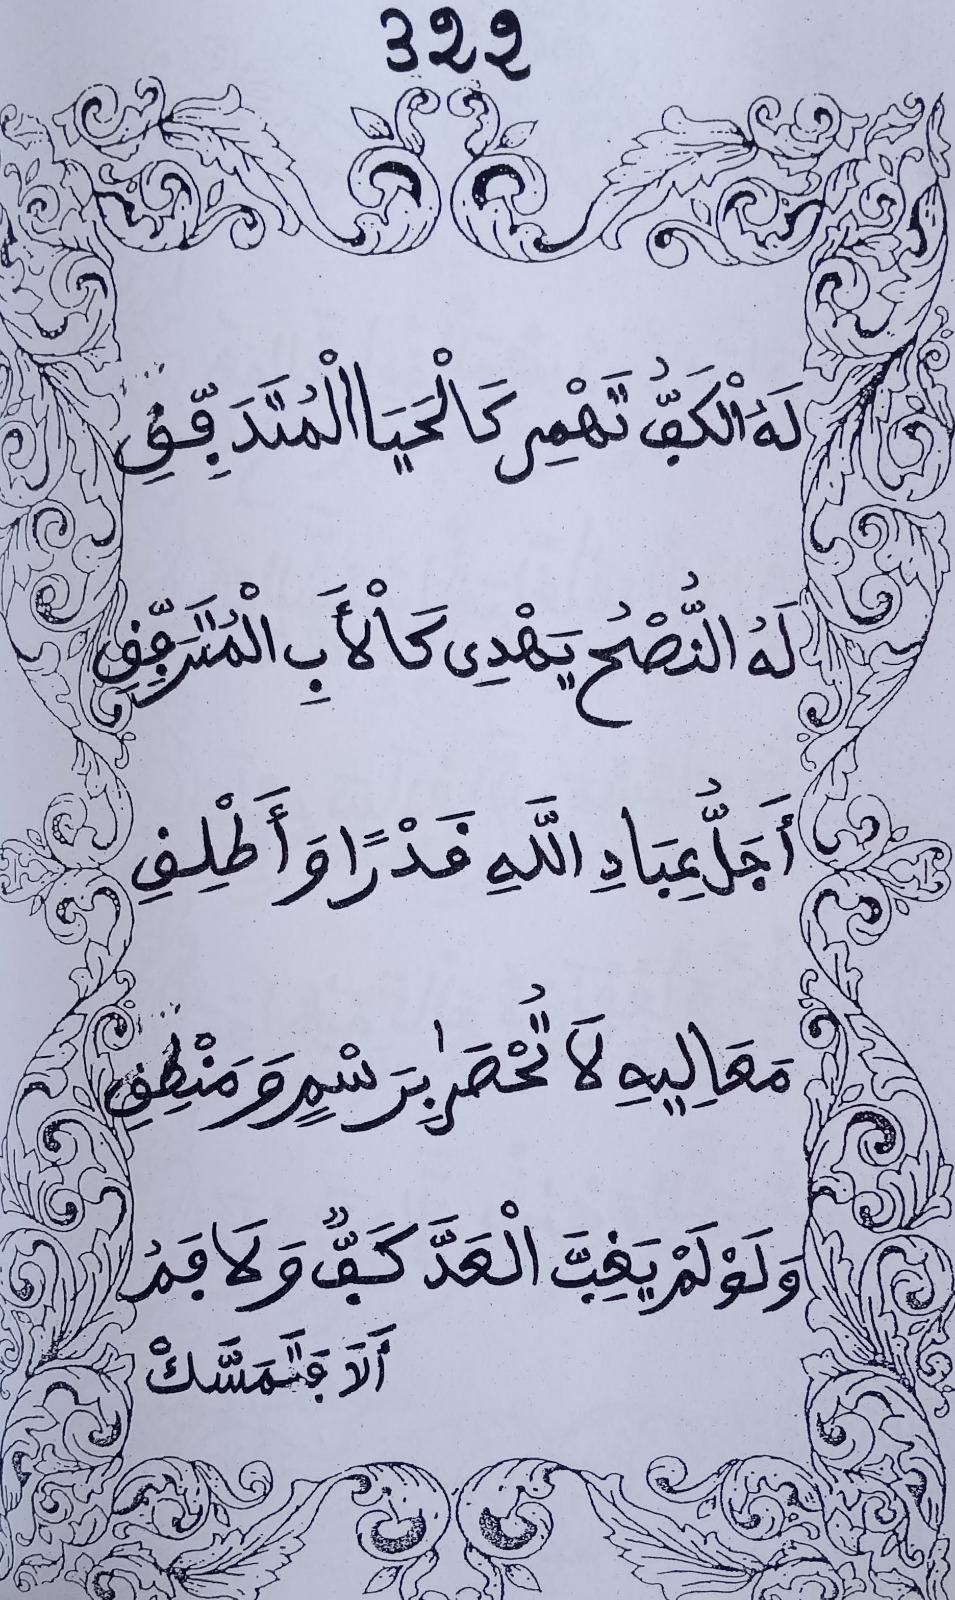 322
لَهُ الْكَفُّ تَهْمِر كَالْحَيَا الْمُتَدَفِّقِ
لَهُ النُّصْحُ يَهْدِي كَالْأَبِ الْمُتَرَفِّقِ
أَجَلُّ عِبَادِ اللَّهِ قَدْرًا وَأَطْلِقِ
مَعَالِيهِ لَا تُحْصَرْ بِرَسْمٍ وَمَنْطِقِ
وَلَوْ لَمْ يَغِبَّ الْعَدَّ كَفٌّ وَلَا فَمُ
أَلَا فَتَمَسَّكْ